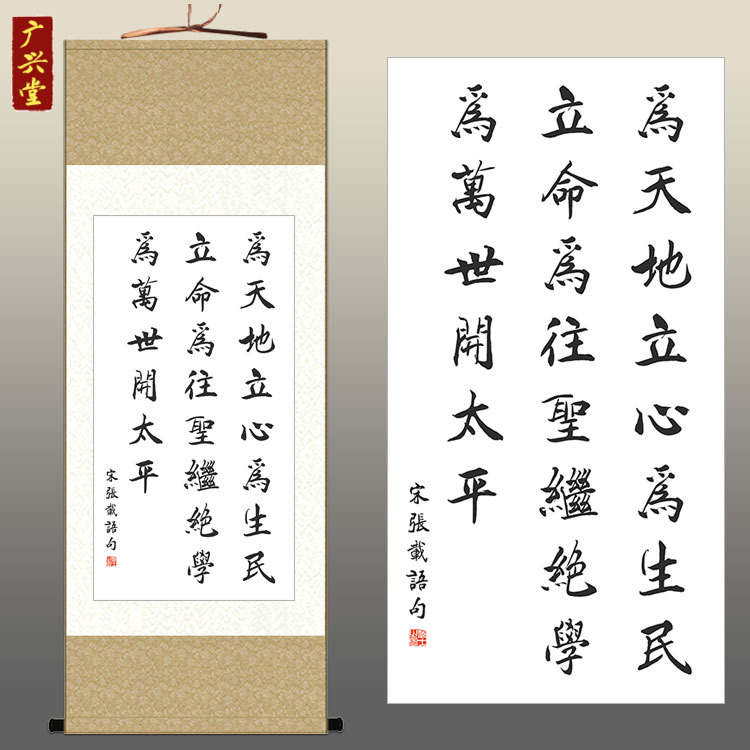 广兴堂
為天地立心為生民
立命為往聖繼絕學
為萬世開太平
宋張載語句
為天地立心為生民
立命為往聖繼絕學
為萬世開太平
宋張載語句